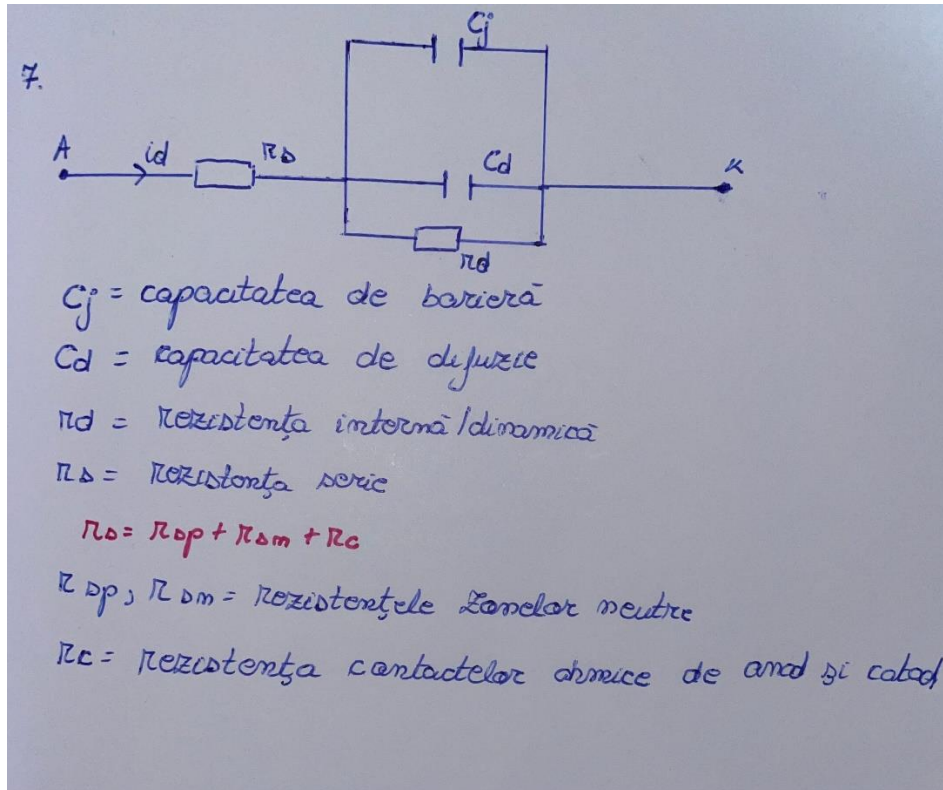 7.
Cj
A id rs Cd K
rd
Cj = capacitatea de barieră
Cd = capacitatea de difuzie
rd = rezistența internă/dinamică
rs = rezistența serie
rs = rsp + rsn + rc
rsp, rsn = rezistențele zonelor neutre
rc = rezistența contactelor ohmice de anod și catod